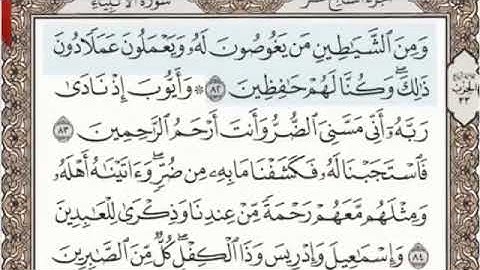 سورة الأنبياء الجزء السابع عشر
وَمِنَ ٱلشَّيَٰطِينِ مَن يَغُوصُونَ لَهُۥ وَيَعْمَلُونَ عَمَلًا دُونَ
ذَٰلِكَ ۖ وَكُنَّا لَهُمْ حَٰفِظِينَ ٨٢ ۞ وَأَيُّوبَ إِذْ نَادَىٰ
رَبَّهُۥٓ أَنِّى مَسَّنِىَ ٱلضُّرُّ وَأَنتَ أَرْحَمُ ٱلرَّٰحِمِينَ ٨٣
فَٱسْتَجَبْنَا لَهُۥ فَكَشَفْنَا مَا بِهِۦ مِن ضُرٍّ ۖ وَءَاتَيْنَٰهُ أَهْلَهُۥ
وَمِثْلَهُم مَّعَهُمْ رَحْمَةً مِّنْ عِندِنَا وَذِكْرَىٰ لِلْعَٰبِدِينَ
٨٤ وَإِسْمَٰعِيلَ وَإِدْرِيسَ وَذَا ٱلْكِفْلِ ۖ كُلٌّ مِّنَ ٱلصَّٰبِرِينَ
الحزب
٣٣